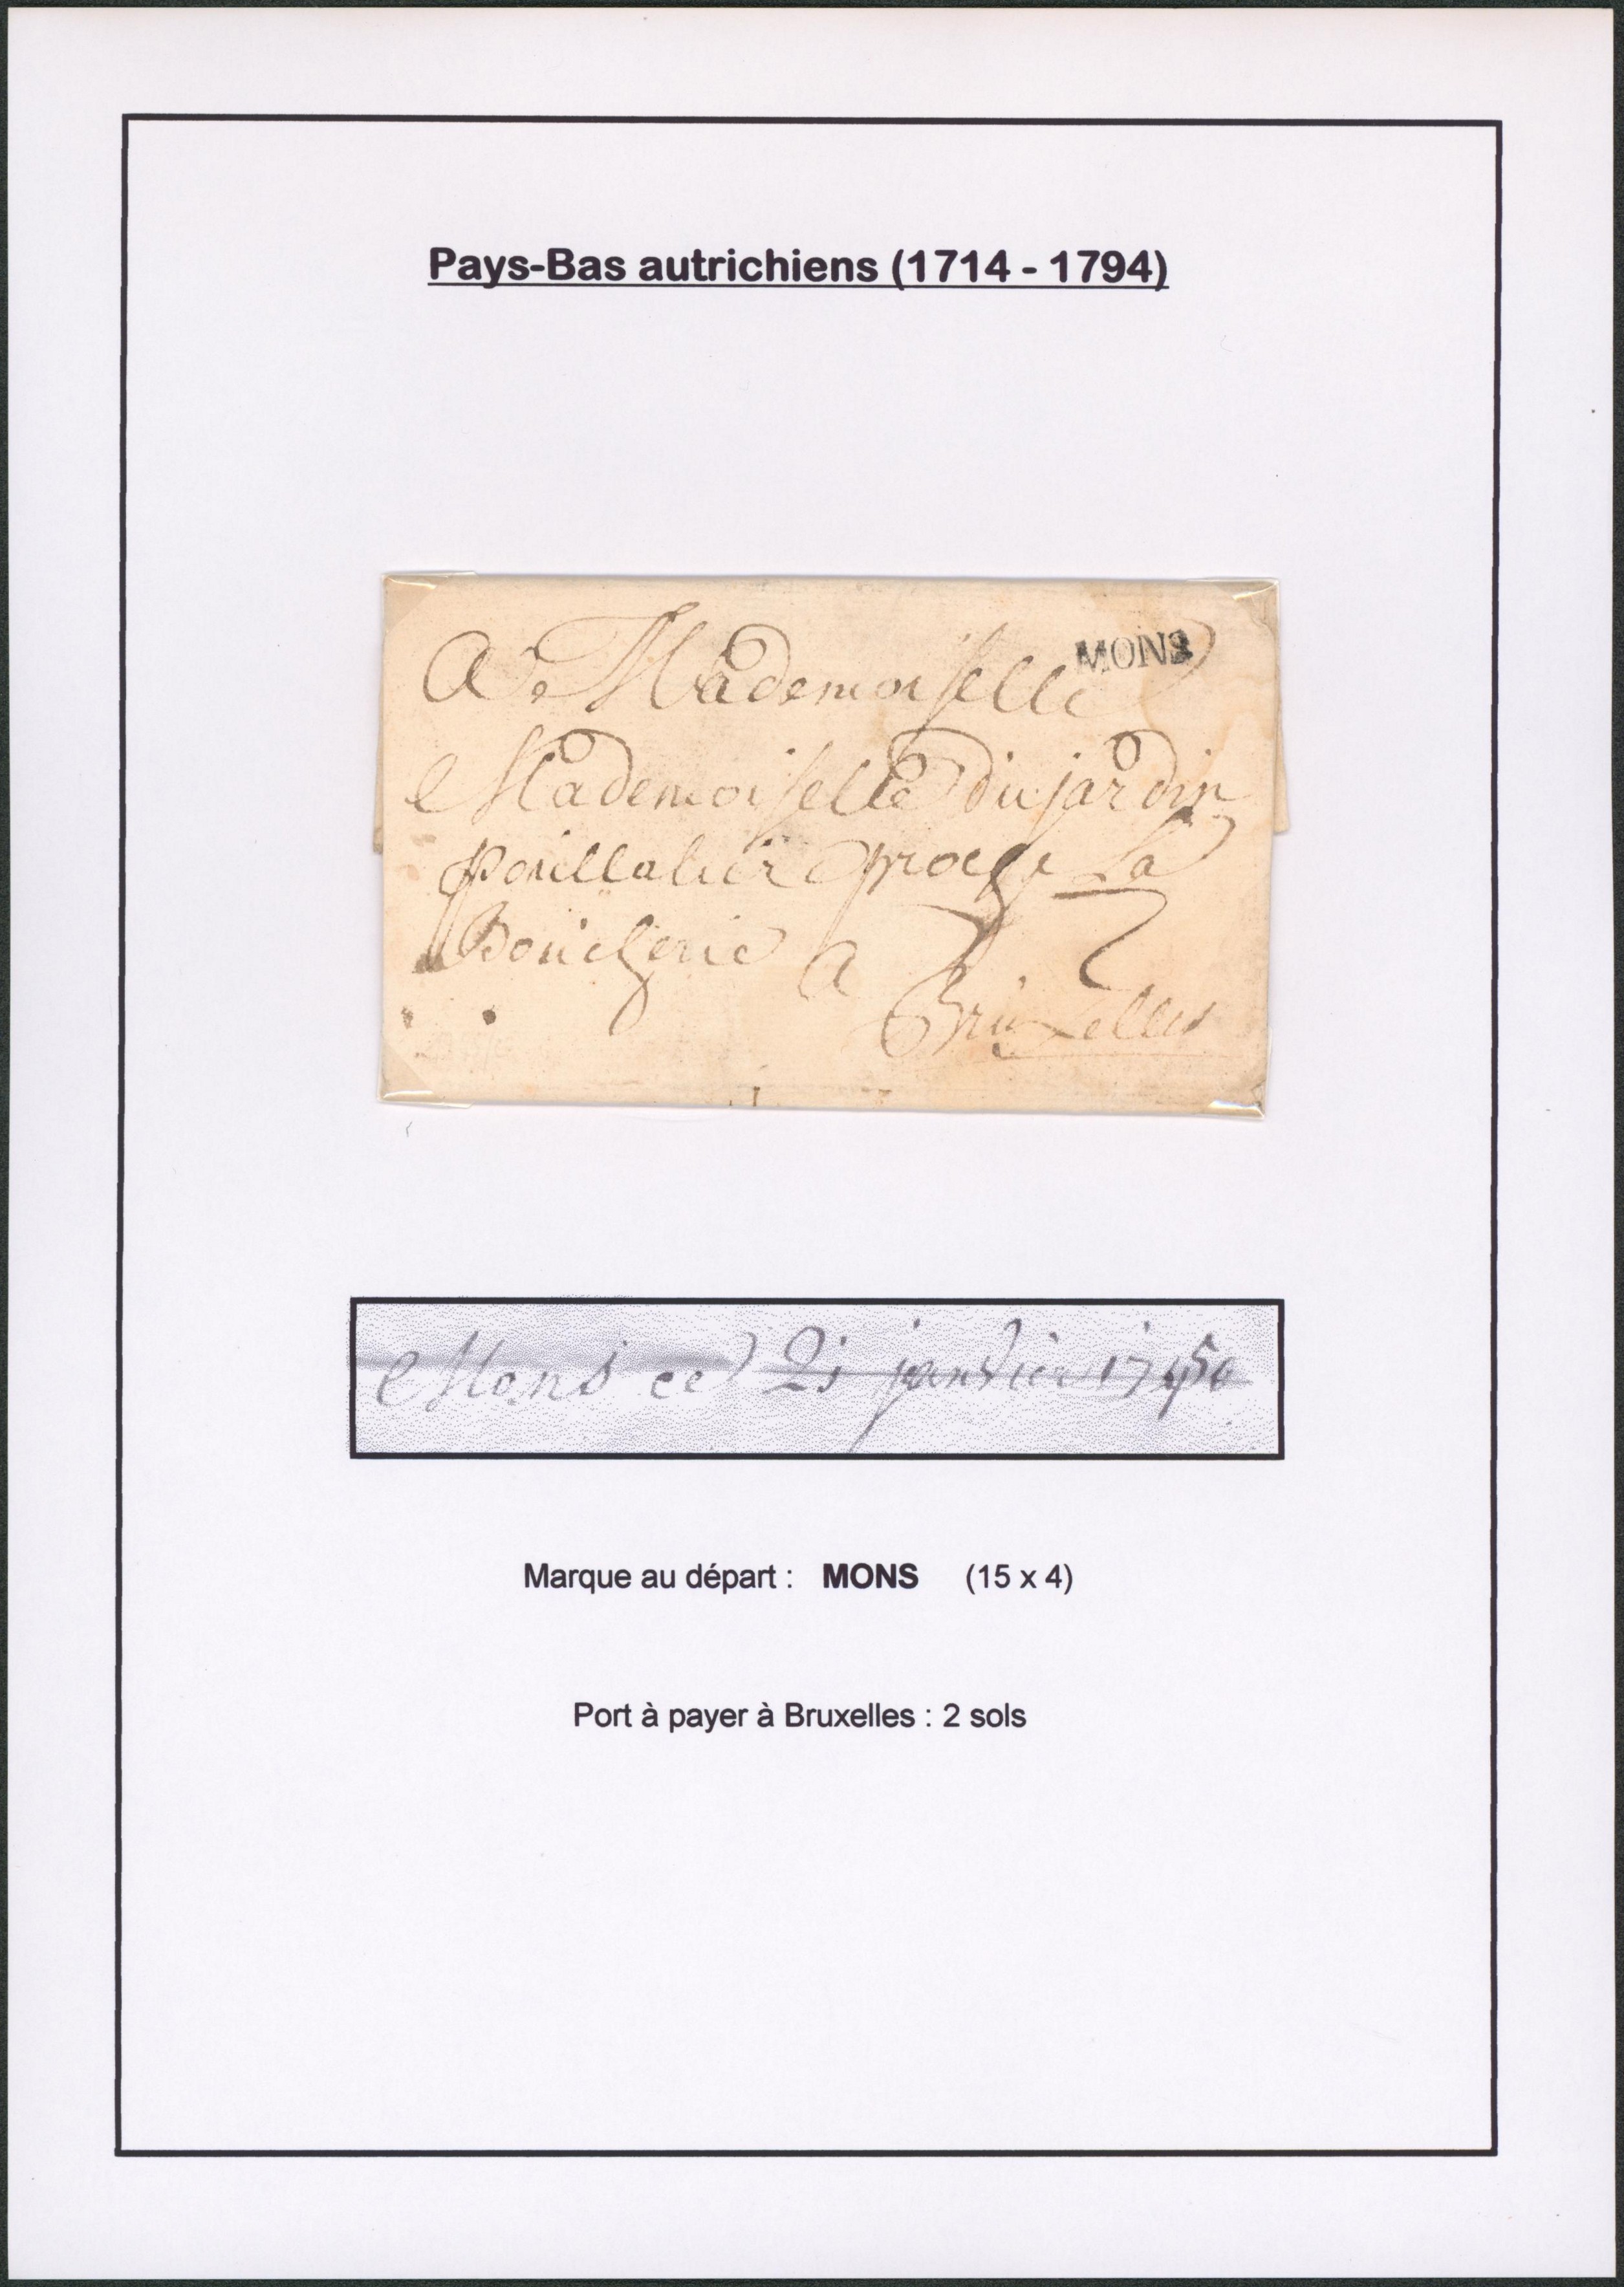 Pays-Bas autrichiens (1714 - 1794)
MONS
A Mademoiselle
Mademoiselle dujardin
proche La
Boucherie a
2
Bruxelles
Mons ce 21 janvier 1750
Marque au départ : MONS (15 x 4)
Port à payer à Bruxelles : 2 sols